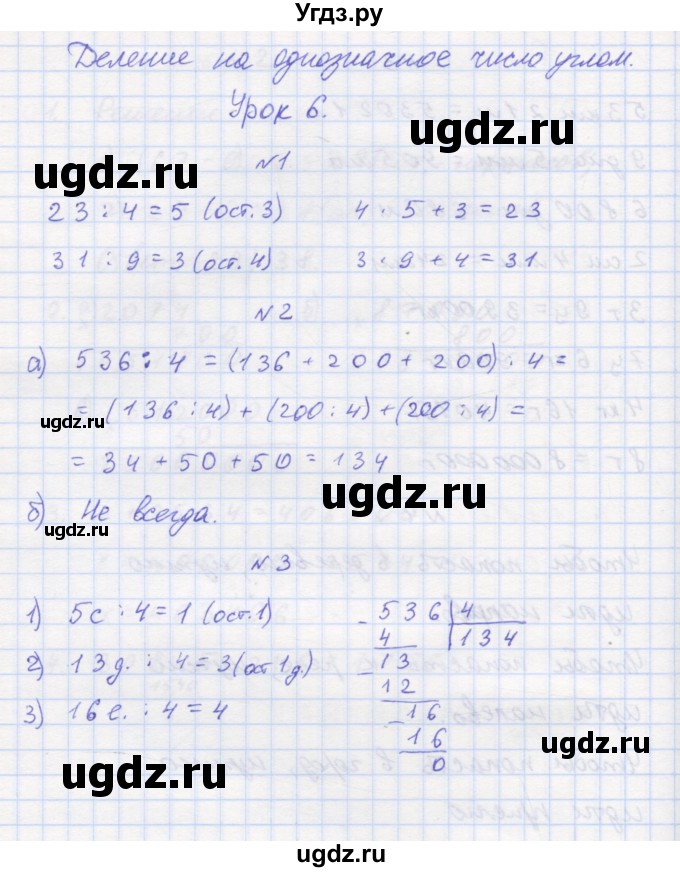 Угдз.ру
Деление на однозначное число углом.
Урок 6.
№1
23 : 4 = 5 (ост. 3) 4 · 5 + 3 = 23
31 : 9 = 3 (ост. 4) 3 · 9 + 4 = 31
№2
а) 536 : 4 = (136 + 200 + 200) : 4 =
= (136 : 4) + (200 : 4) + (200 : 4) =
= 34 + 50 + 50 = 134
б) Не всегда.
№3
1) 5с : 4 = 1 (ост. 1)
2) 13д. : 4 = 3 (ост 1д.)
3) 16е. : 4 = 4
- 536 | 4
4 | 134
- 13
12
- 16
16
0
ugdz.ru
ugdz.ru
ugdz.ru
ugdz.ru
ugdz.ru
ugdz.ru
ugdz.ru
ugdz.ru
ugdz.ru
ugdz.ru
ugdz.ru